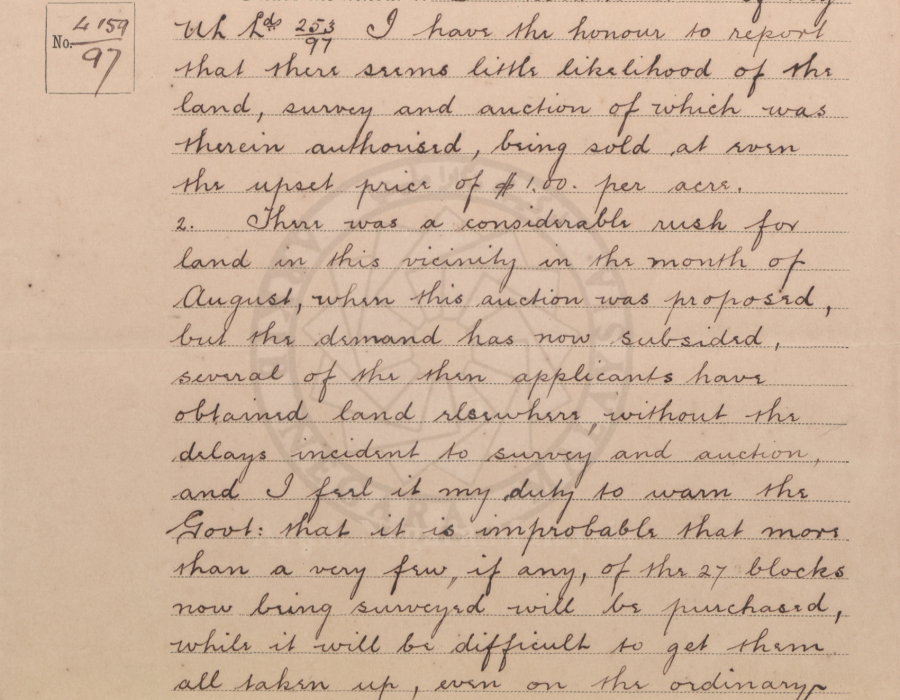 No. 4159/97
Uh Lds 253/97 I have the honour to report
that there seems little likelihood of the
land, survey and auction of which was
therein authorised, being sold at even
the upset price of $1.00. per acre.
2. There was a considerable rush for
land in this vicinity in the month of
August, when this auction was proposed,
but the demand has now subsided,
several of the then applicants have
obtained land elsewhere, without the
delays incident to survey and auction,
and I feel it my duty to warn the
Govt: that it is improbable that more
than a very few, if any, of the 27 blocks
now being surveyed will be purchased,
while it will be difficult to get them
all taken up, even on the ordinary